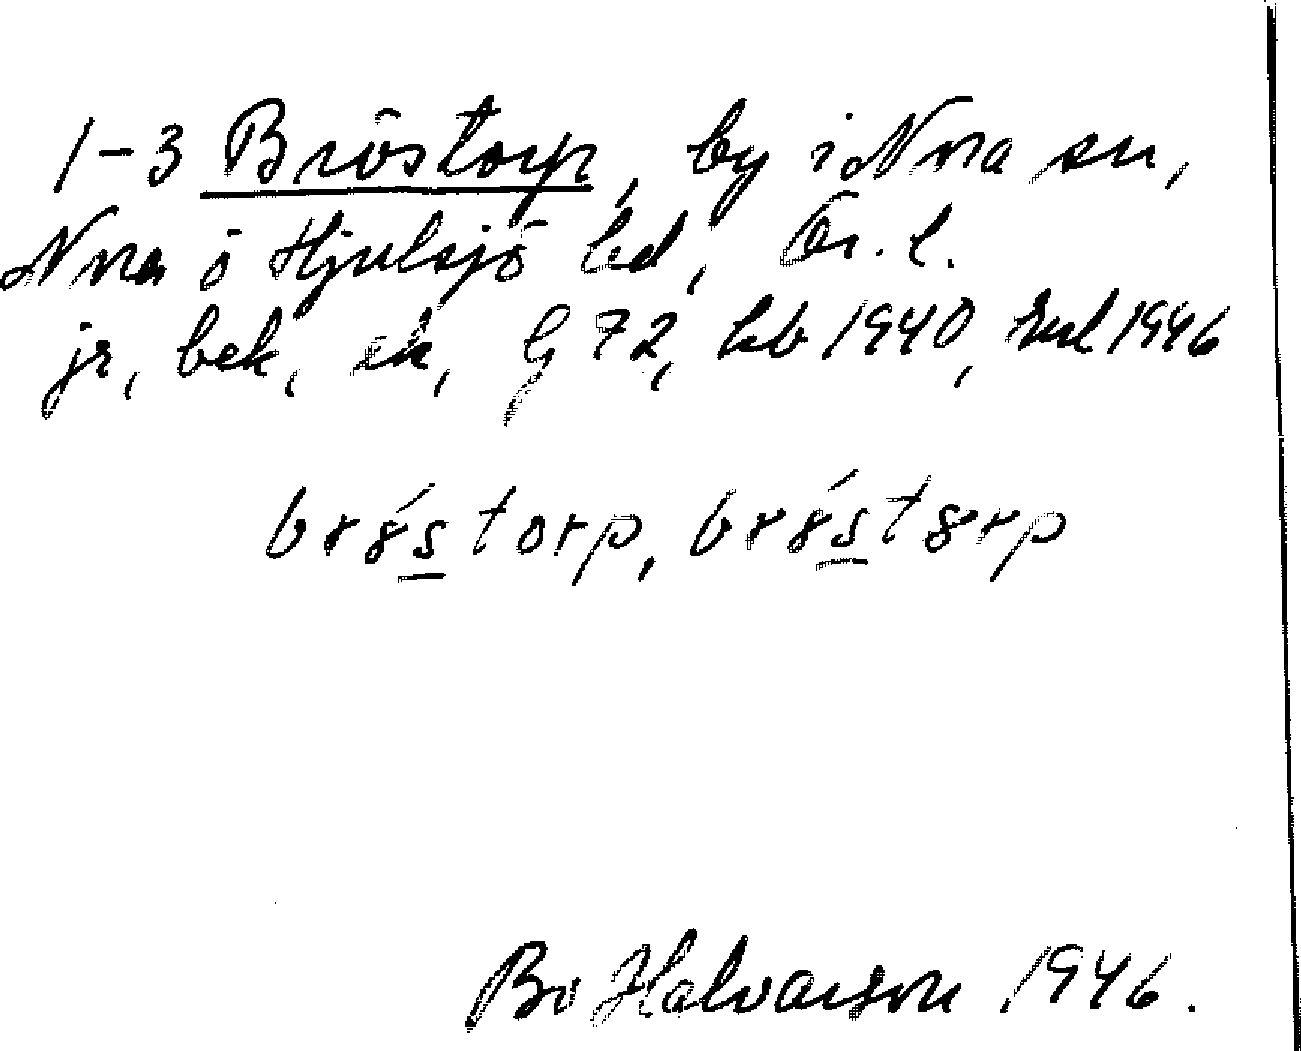 1-3 Bröstorp, by i Nora sn,
Nora o Hjulsjö hd, Ör. l.
jr, bek, ek, G 72, hb 1940, 1946
brǿstorp, brǿstørp
Bo Halvarson 1946.